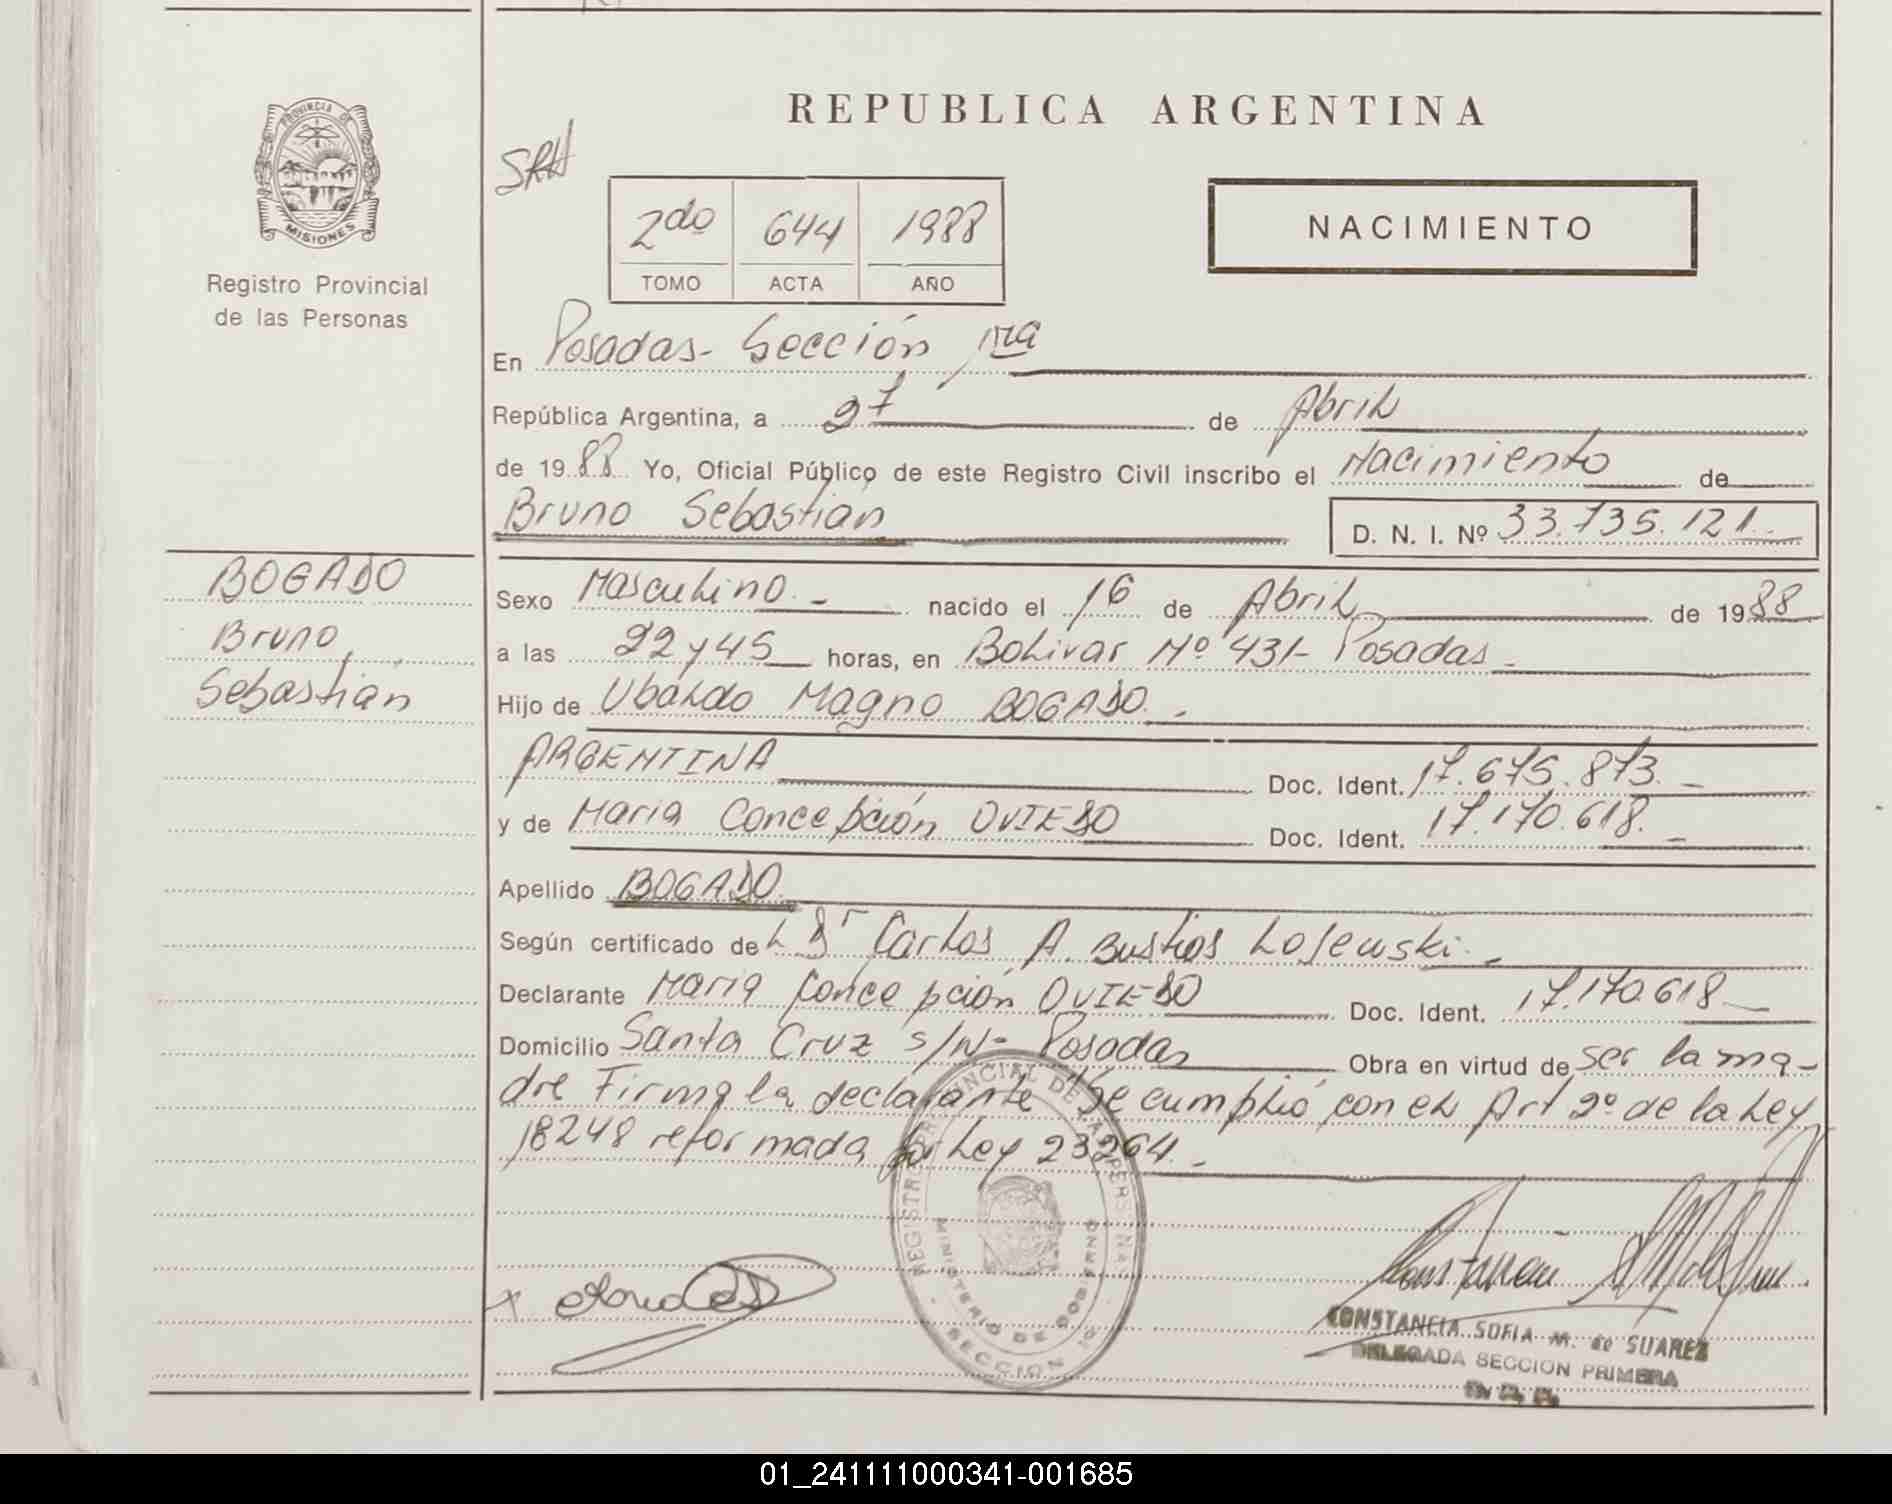 PROVINCIA DE
MISIONES
Registro Provincial
de las Personas
REPUBLICA ARGENTINA
SRH
2do 644 1988
TOMO ACTA AÑO
NACIMIENTO
En Posadas- Sección 1ra
República Argentina, a 27 de Abril
de 1988 Yo, Oficial Público de este Registro Civil inscribo el Nacimiento de
Bruno Sebastián D. N. I. Nº 33.735.121
BOGADO
Bruno
Sebastián
Sexo Masculino.- nacido el 16 de Abril de 1988
a las 22 y 45 horas, en Bolivar Nº 431- Posadas-
Hijo de Ubaldo Magno BOGADO.-
ARGENTINA Doc. Ident. 17.675.873.-
y de Maria Concepción OVIEDO Doc. Ident. 17.170.618.-
Apellido BOGADO.
Según certificado del Dr Carlos A. Bustios Losewski.-
Declarante Maria Concepción OVIEDO Doc. Ident. 17.170.618-
Domicilio Santa Cruz s/N- Posadas Obra en virtud de ser la ma-
dre Firma la declarante Se cumplió con el Art 2º de la Ley
18248 reformada por Ley 23264.-
REGISTRO PROVINCIAL DE LAS PERSONAS
MINISTERIO DE GOBIERNO
SECCION 1a
CONSTANCIA SOFIA M. de SUAREZ
DELEGADA SECCION PRIMERA
01_241111000341-001685